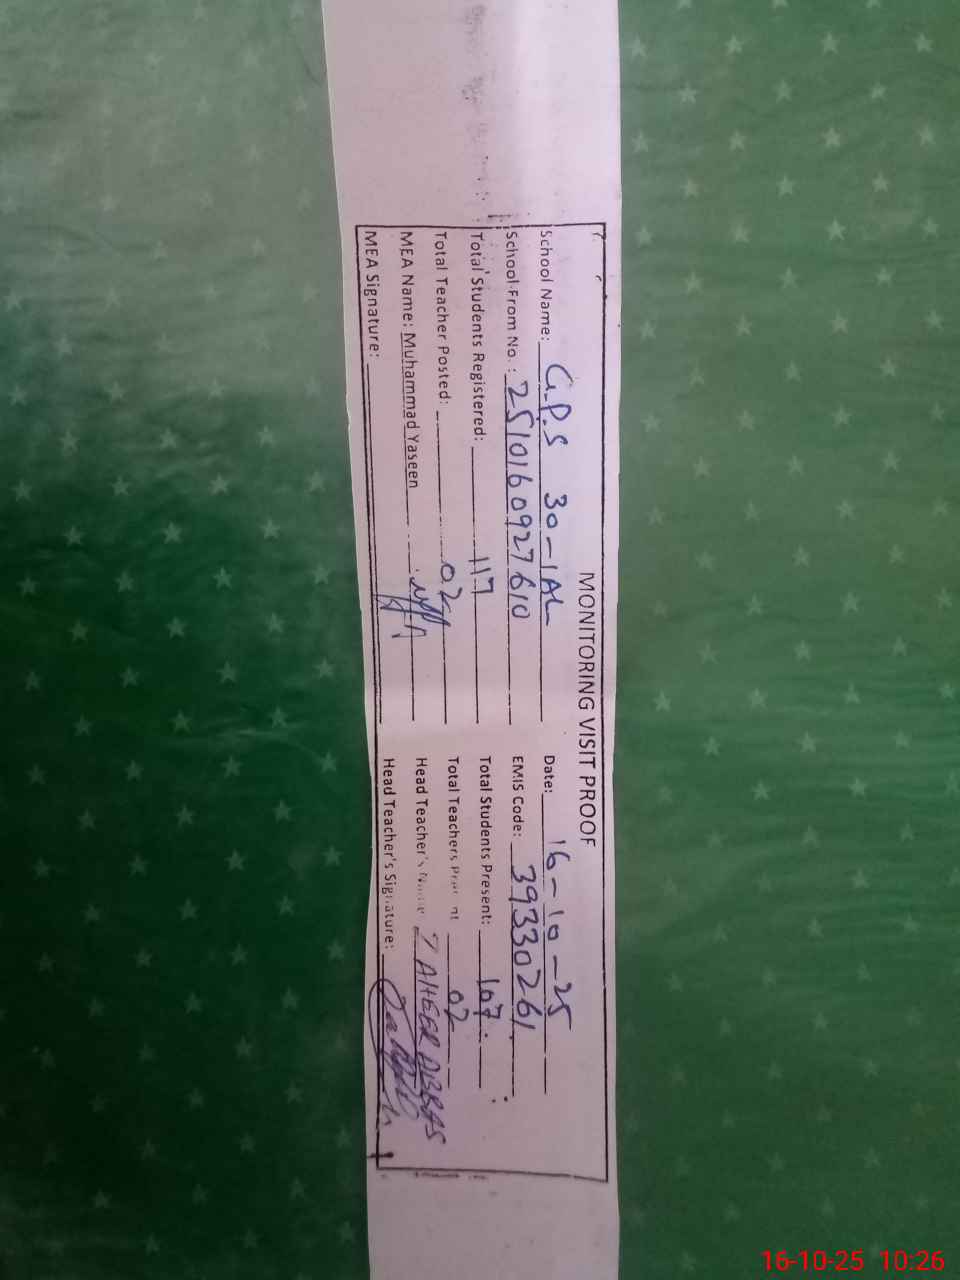 MONITORING VISIT PROOF
School Name: G.P.S 30-1AL Date: 16-10-25
School From No.: 2510160927610 EMIS Code: 39330261
Total Students Registered: 117 Total Students Present: 107
Total Teacher Posted: 02 Total Teachers Present 02
MEA Name: Muhammad Yaseen Head Teacher's Name ZAHEER ABBAS
MEA Signature: Head Teacher's Signature:
16-10-25 10:26